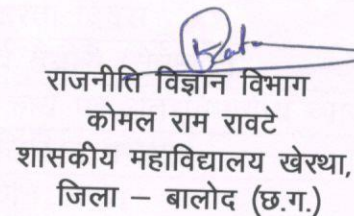 राजनीति विज्ञान विभाग
कोमल राम रावटे
शासकीय महाविद्यालय खेरथा,
जिला – बालोद (छ.ग.)